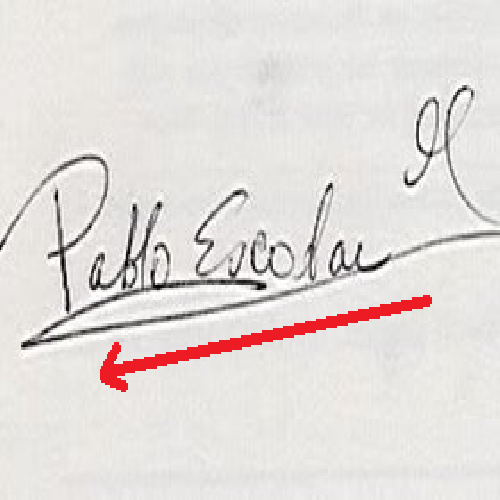 Pablo Escobar G